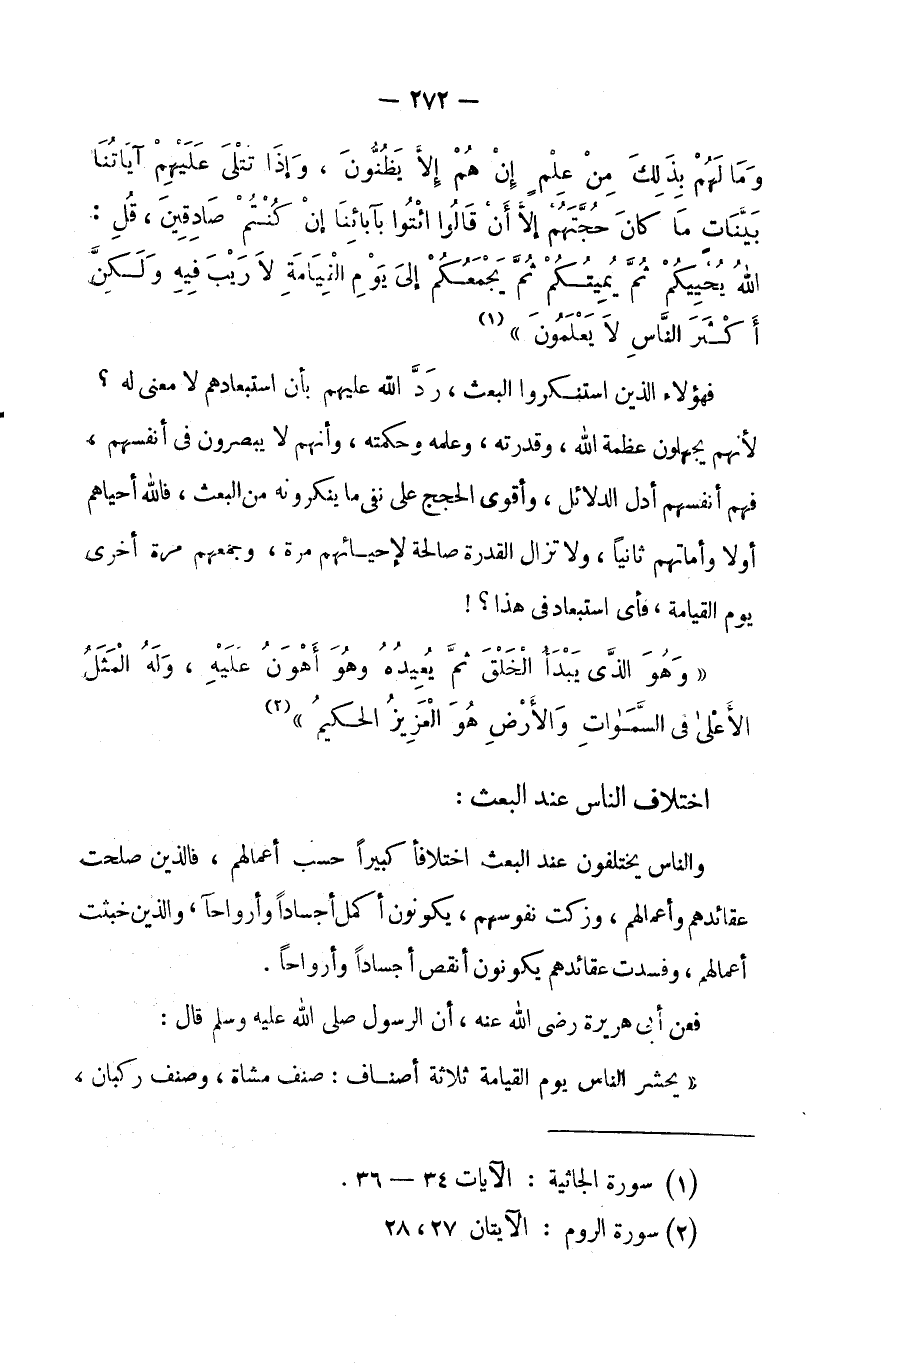 — ٢٧٢ —
وَمَا لَهُمْ بِذَلِكَ مِنْ عِلْمٍ إِنْ هُمْ إِلاَّ يَظُنُّونَ ، وَإِذَا تُتْلَى عَلَيْهِمْ آيَاتُنَا
بَيِّنَاتٍ مَا كَانَ حُجَّتَهُمْ إِلاَّ أَنْ قَالُوا ائْتُوا بِآبَائِنَا إِنْ كُنْتُمْ صَادِقِينَ ، قُلِ :
اللهُ يُحْيِيكُمْ ثُمَّ يُمِيتُكُمْ ثُمَّ يَجْمَعُكُمْ إِلَى يَوْمِ الْقِيَامَةِ لاَ رَيْبَ فِيهِ وَلَكِنَّ
أَكْثَرَ النَّاسِ لاَ يَعْلَمُونَ » (١)
فهؤلاء الذين استنكروا البعث ، رَدَّ الله عليهم بأن استبعادهم لا معنى له ؟
لأنهم يجهلون عظمة الله ، وقدرته ، وعلمه وحكمته ، وأنهم لا يبصرون فى أنفسهم ،
فهم أنفسهم أدل الدلائل ، وأقوى الحجج على نفى ما ينكرونه من البعث ، فالله أحياهم
أولا وأماتهم ثانياً ، ولا تزال القدرة صالحة لإحيائهم مرة ، وجمعهم مرة أخرى
يوم القيامة ، فأى استبعاد فى هذا ؟ !
« وَهُوَ الذَّى يَبْدَأُ الْخَلْقَ ثُمَّ يُعِيدُهُ وهُوَ أَهْوَنُ عَلَيْهِ ، وَلَهُ الْمَثَلُ
الأَعْلَىٰ فى السَّمَوَاتِ وَالأَرْضِ هُوَ الْعَزِيزُ الحَكِيمُ » (٢)
اختلاف الناس عند البعث :
والناس يختلفون عند البعث اختلافاً كبيراً حسب أعمالهم ، فالذين صلحت
عقائدهم وأعمالهم ، وزكت نفوسهم ، يكونون أكمل أجساداً وأرواحاً ، والذين خبثت
أعمالهم ، وفسدت عقائدهم يكونون أنقص أجساداً وأرواحاً .
فعن أبى هريرة رضى الله عنه ، أن الرسول صلى الله عليه وسلم قال :
« يحشر الناس يوم القيامة ثلاثة أصناف : صنف مشاة ، وصنف ركبان ،
(١) سورة الجاثية : الآيات ٣٤ — ٣٦ .
(٢) سورة الروم : الآيتان ٢٧ ، ٢٨